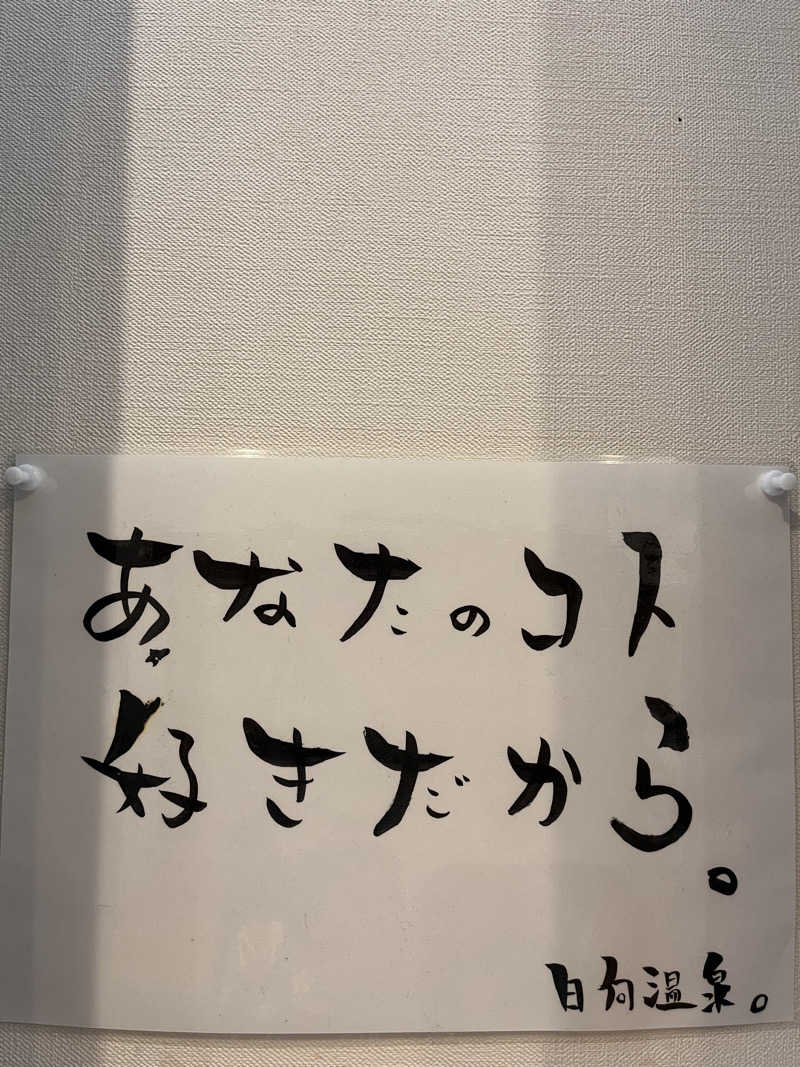 あなたのコト
好きだから。
日向温泉。